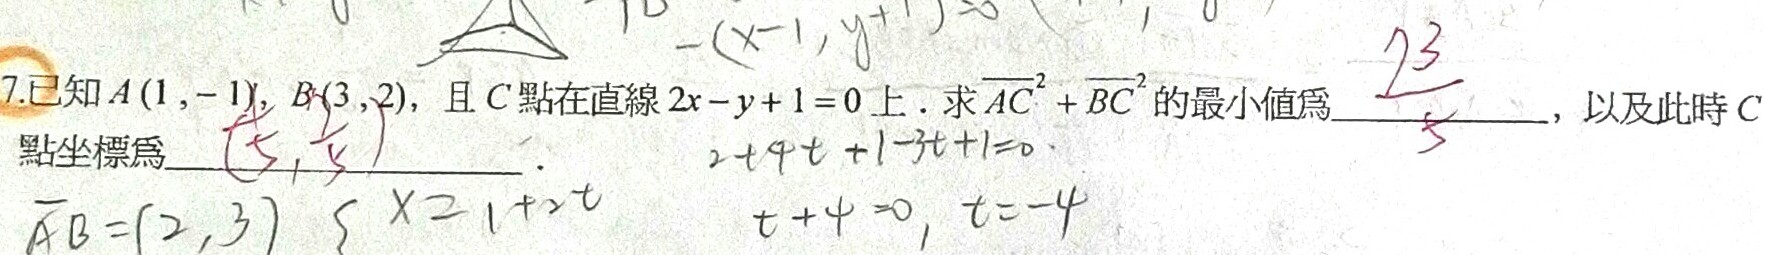 -(x-1, y+1)=0
7.已知 A (1 , -1), B (3 , 2), 且 C 點在直線 2x - y + 1 = 0 上 . 求 \overline{AC}² + \overline{BC}² 的最小值為 73/5 , 以及此時 C
點坐標為 .
2+4t+1-3t+1=0
AB=(2,3) { x=1+2t t+4=0, t=-4